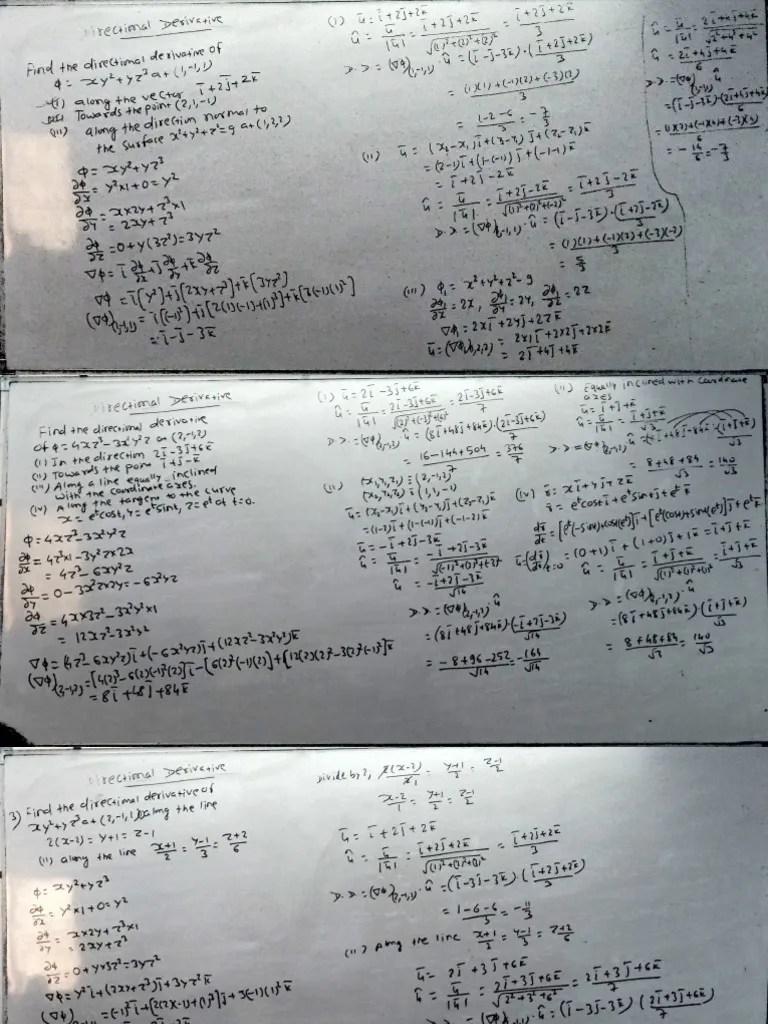 Directional Derivative
Find the directional derivative of
φ = xy²+yz³ at (1,-1,1)
(i) along the vector i̅+2j̅+2k̅
(ii) Towards the point (2,1,-1)
(iii) along the direction normal to
the surface x²+y²+z²=9 at (1,2,2)
φ = xy²+yz³
∂φ/∂x = y²×1+0=y²
∂φ/∂y = x×2y+z³×1
= 2xy+z³
∂φ/∂z = 0+y(3z²)=3yz²
∇φ = i̅ ∂φ/∂x + j̅ ∂φ/∂y + k̅ ∂φ/∂z
∇φ = i̅[y²]+j̅[2xy+z³]+k̅[3yz²]
(∇φ)(1,-1,1) = i̅[(-1)²]+j̅[2(1)(-1)+(1)³]+k̅[3(-1)(1)²]
= i̅-j̅-3k̅
(i) u̅ = i̅+2j̅+2k̅
û = u̅/|u̅| = (i̅+2j̅+2k̅)/√((1)²+(2)²+(2)²) = (i̅+2j̅+2k̅)/3
D.D = (∇φ)(1,-1,1) · û = (i̅-j̅-3k̅)·(i̅+2j̅+2k̅)/3
= ((1)(1)+(-1)(2)+(-3)(2))/3
= (1-2-6)/3 = -7/3
(ii) u̅ = (x₂-x₁)i̅+(y₂-y₁)j̅+(z₂-z₁)k̅
= (2-1)i̅+(1-(-1))j̅+(-1-1)k̅
= i̅+2j̅-2k̅
û = u̅/|u̅| = (i̅+2j̅-2k̅)/√((1)²+(2)²+(-2)²) = (i̅+2j̅-2k̅)/3
D.D = (∇φ)(1,-1,1) · û = (i̅-j̅-3k̅)·(i̅+2j̅-2k̅)/3
= ((1)(1)+(-1)(2)+(-3)(-2))/3
= 5/3
(iii) φ₁ = x²+y²+z²-9
∂φ₁/∂x = 2x, ∂φ₁/∂y = 2y, ∂φ₁/∂z = 2z
∇φ₁ = 2xi̅+2yj̅+2zk̅
u̅ = (∇φ₁)(1,2,2) = 2×1i̅+2×2j̅+2×2k̅
= 2i̅+4j̅+4k̅
û = u̅/|u̅| = (2i̅+4j̅+4k̅)/√(2²+4²+4²)
û = (2i̅+4j̅+4k̅)/6
D.D = (∇φ)(1,-1,1) · û
= (i̅-j̅-3k̅)·(2i̅+4j̅+4k̅)/6
= -14/6 = -7/3
Directional Derivative
Find the directional derivative
of φ = 4xz³-3x²y²z at (2,-1,2)
(i) In the direction 2i̅-3j̅+6k̅
(ii) Towards the point i̅+j̅-k̅
(iii) Along a line equally inclined
with the coordinate axes.
(iv) Along the tangent to the curve
x = eᵗcost, y = eᵗsint, z = eᵗ at t=0.
φ = 4xz³-3x²y²z
∂φ/∂x = 4z³×1-3y²z×2x
= 4z³-6xy²z
∂φ/∂y = 0-3x²z×2y = -6x²yz
∂φ/∂z = 4x×3z²-3x²y²×1
= 12xz²-3x²y²
∇φ = (4z³-6xy²z)i̅+(-6x²yz)j̅+(12xz²-3x²y²)k̅
(∇φ)(2,-1,2) = [4(2)³-6(2)(-1)²(2)]i̅-[6(2)²(-1)(2)]+[12(2)(2)²-3(2)²(-1)²]k̅
= 8i̅+48j̅+84k̅
(i) u̅ = 2i̅-3j̅+6k̅
û = u̅/|u̅| = (2i̅-3j̅+6k̅)/√((2)²+(-3)²+(6)²) = (2i̅-3j̅+6k̅)/7
D.D = (∇φ)(2,-1,2) · û = (8i̅+48j̅+84k̅)·(2i̅-3j̅+6k̅)/7
= (16-144+504)/7 = 376/7
(ii) (x₁,y₁,z₁) = (2,-1,2)
(x₂,y₂,z₂) = (1,1,-1)
u̅ = (x₂-x₁)i̅+(y₂-y₁)j̅+(z₂-z₁)k̅
= (1-2)i̅+(1-(-1))j̅+(-1-2)k̅
u̅ = -i̅+2j̅-3k̅
û = u̅/|u̅| = (-i̅+2j̅-3k̅)/√((-1)²+(2)²+(-3)²)
û = (-i̅+2j̅-3k̅)/√14
D.D = (∇φ)(2,-1,2) · û
= (8i̅+48j̅+84k̅)·(-i̅+2j̅-3k̅)/√14
= (-8+96-252)/√14 = -164/√14
(ii) Equally inclined with coordinate
axes
u̅ = i̅+j̅+k̅
û = u̅/|u̅| = (i̅+j̅+k̅)/√3
D.D = (∇φ)(2,-1,2) · û = (8i̅+48j̅+84k̅)·(i̅+j̅+k̅)/√3
= (8+48+84)/√3 = 140/√3
(iv) r̅ = xi̅+yj̅+zk̅
r̅ = eᵗcost i̅+eᵗsint j̅+eᵗ k̅
dr̅/dt = [eᵗ(-sint)+cost(eᵗ)]i̅+[eᵗ(cost)+sint(eᵗ)]j̅+eᵗk̅
u̅ = (dr̅/dt)t=0 = (0+1)i̅+(1+0)j̅+1k̅ = i̅+j̅+k̅
û = u̅/|u̅| = (i̅+j̅+k̅)/√((1)²+(1)²+(1)²) = (i̅+j̅+k̅)/√3
D.D = (∇φ)(2,-1,2) · û
= (8i̅+48j̅+84k̅)·(i̅+j̅+k̅)/√3
= (8+48+84)/√3 = 140/√3
Directional Derivative
3) Find the directional derivative of
xy²+yz³ at (2,-1,1) (i) along the line
2(x-2) = y+1 = z-1
(ii) along the line (x+1)/2 = (y-1)/3 = (z+2)/6
φ = xy²+yz³
∂φ/∂x = y²×1+0=y²
∂φ/∂y = x×2y+z³×1
= 2xy+z³
∂φ/∂z = 0+y×3z²=3yz²
∇φ = y²i̅+(2xy+z³)j̅+3yz²k̅
(∇φ) = (-1)²i̅+[2(2)(-1)+(1)³]j̅+3(-1)(1)²k̅
Divide by 2, 2(x-2)/2 = (y+1)/2 = (z-1)/2
(x-2)/1 = (y+1)/2 = (z-1)/2
u̅ = i̅+2j̅+2k̅
û = u̅/|u̅| = (i̅+2j̅+2k̅)/√((1)²+(2)²+(2)²) = (i̅+2j̅+2k̅)/3
D.D = (∇φ)(2,-1,1) · û = (i̅-3j̅-3k̅)·(i̅+2j̅+2k̅)/3
= (1-6-6)/3 = -11/3
(ii) Along the line (x+1)/2 = (y-1)/3 = (z+2)/6
u̅ = 2i̅+3j̅+6k̅
û = u̅/|u̅| = (2i̅+3j̅+6k̅)/√(2²+3²+6²) = (2i̅+3j̅+6k̅)/7
D.D = (∇φ)(2,-1,1) · û = (i̅-3j̅-3k̅)·(2i̅+3j̅+6k̅)/7